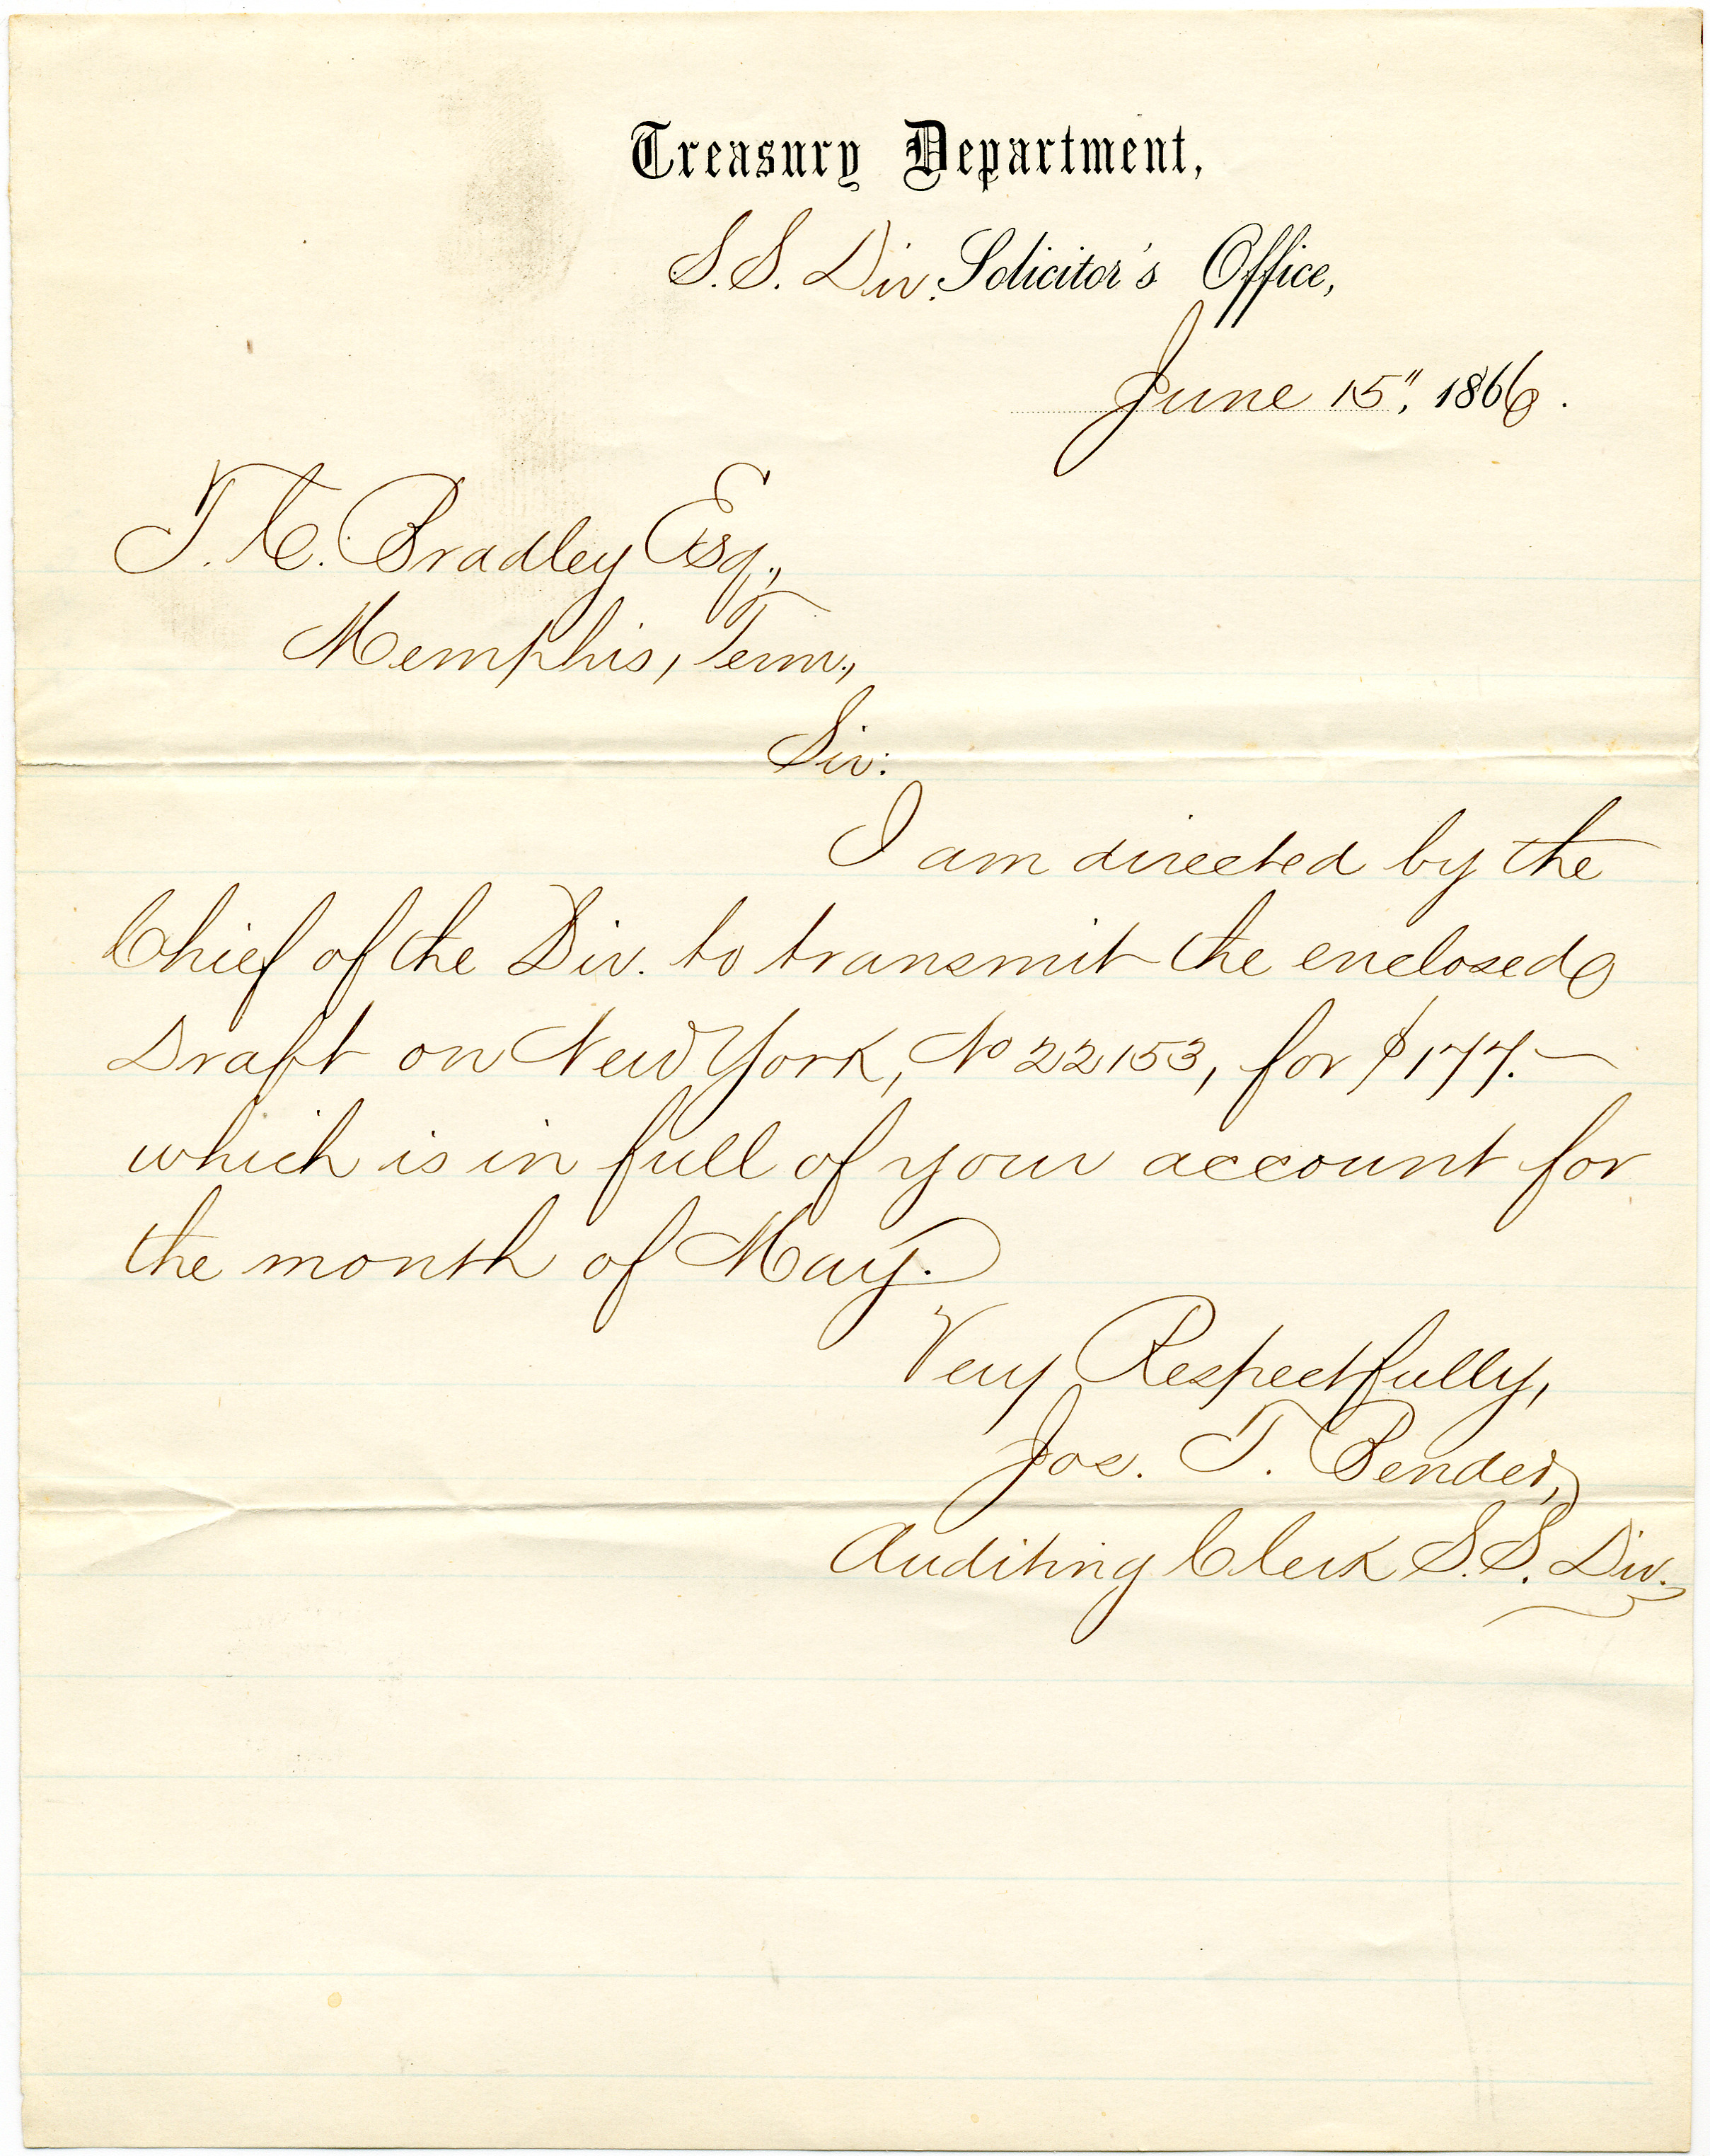 Treasury Department,
S. S. Div. Solicitor's Office,
June 15", 1866.
T. C. Bradley Esq.,
Memphis, Tenn.,
Sir:
I am directed by the
Chief of the Div. to transmit the enclosed
Draft on New York, No 22153, for $177.—
which is in full of your account for
the month of May.
Very Respectfully,
Jos. T. Bender,
Auditing Clerk S. S. Div.